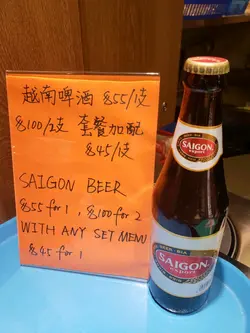 越南啤酒 $55/1支
$100/2支 套餐加配
$45/支
SAIGON BEER
$55 for 1, $100 for 2
WITH ANY SET MENU
$45 for 1
SAIGON
export
BEER - BIA
SAIGON
export